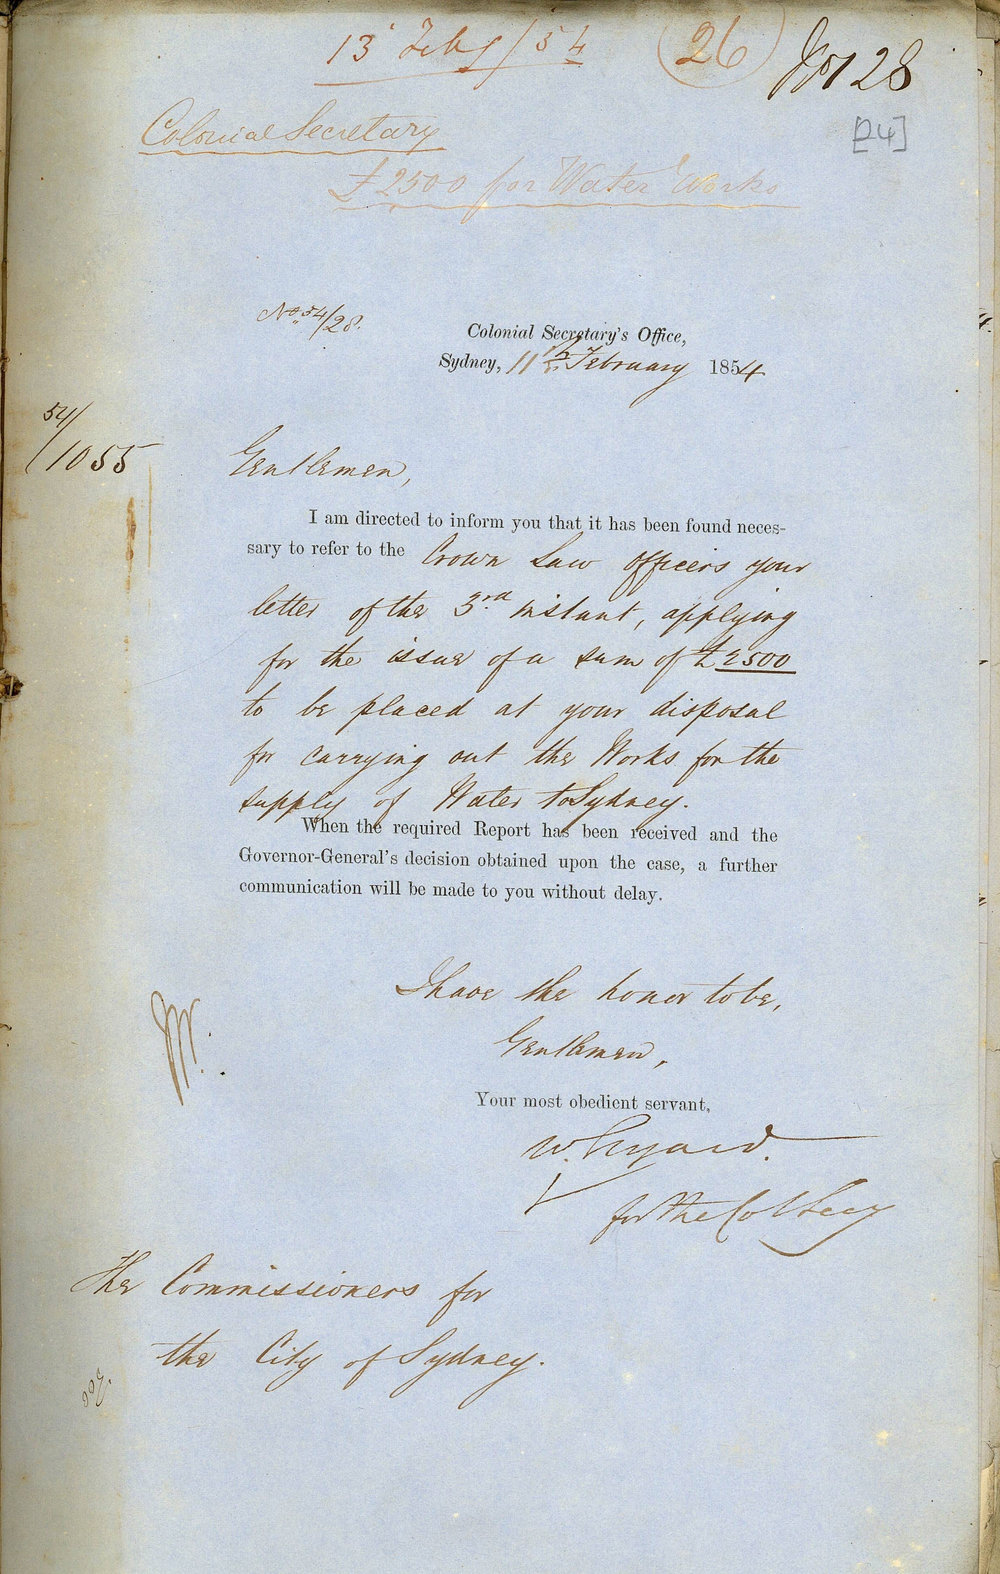 13 Feby/54
26
No 128
[24]
Colonial Secretary
£2500 for Water Works
No. 54/28.
Colonial Secretary's Office,
Sydney, 11th February 1854
54/1055
Gentlemen,
I am directed to inform you that it has been found neces-
sary to refer to the Crown Law Officers your
letter of the 3rd instant, applying
for the issue of a sum of £2500
to be placed at your disposal
for carrying out the Works for the
supply of Water to Sydney.
When the required Report has been received and the
Governor-General's decision obtained upon the case, a further
communication will be made to you without delay.
I have the honor to be,
Gentlemen,
Your most obedient servant,
W. Elyard.
for the Col Secy
The Commissioners for
the City of Sydney.